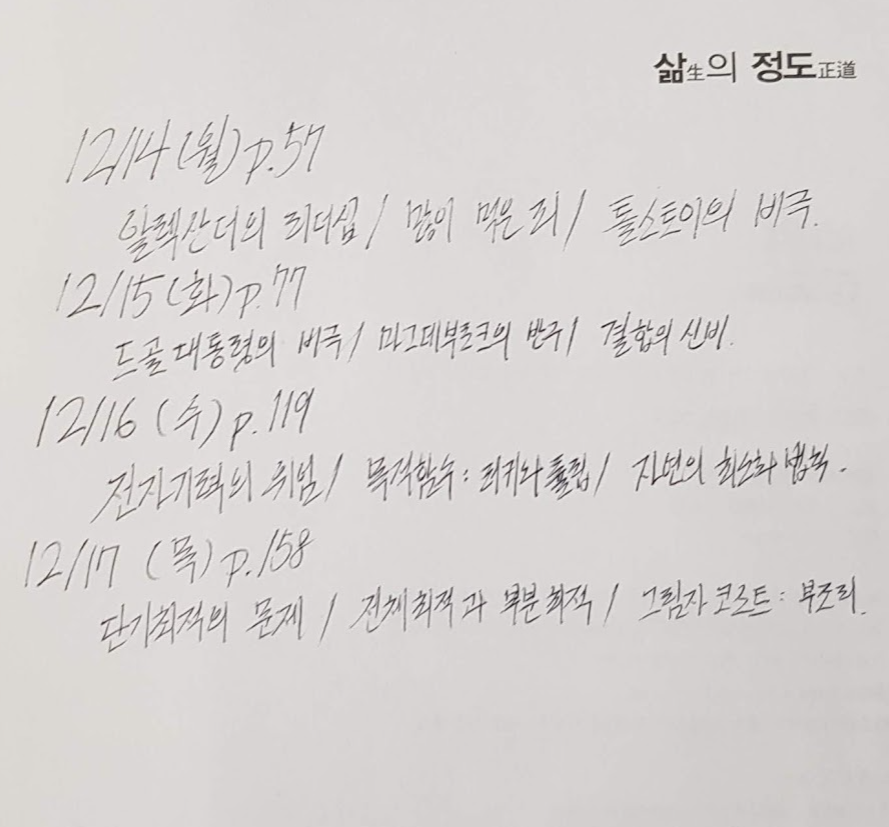 삶生의 정도正道
12/14 (월) p.57
알렉산더의 리더십 / 많이 먹은 죄 / 톨스토이의 비극.
12/15 (화) p.77
드골 대통령의 비극 / 마그데부르크의 반구 / 결합의 신비.
12/16 (수) p.119
전자기력의 위엄 / 목적함수 : 튤립 / 자연의 최소화 법칙.
12/17 (목) p.158
단기최적의 문제 / 전체최적과 부분최적 / 그림자 코스트 : 부조리.